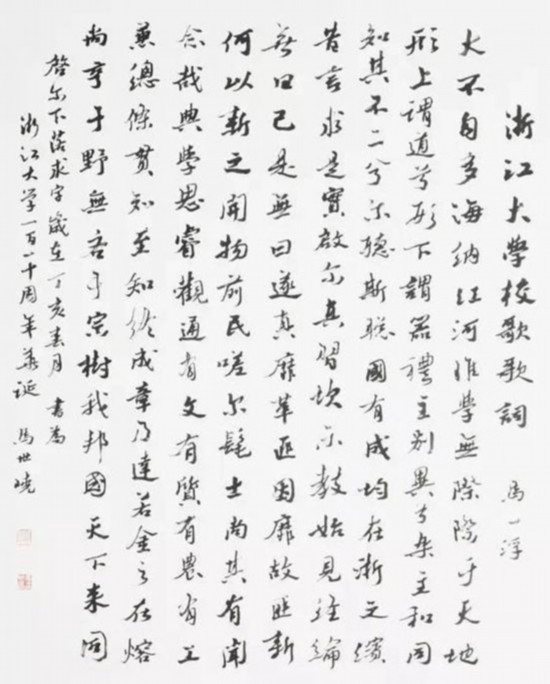 浙江大學校歌歌詞 馬一浮
大不自多海納江河惟學無際際于天地
形上謂道兮形下謂器禮主別異兮樂主和同
知其不二兮尔聽斯聰國有成均在浙之濱
昔言求是實啟尔真習坎示教始見經綸
無曰已是無曰遂真靡革匪因靡故匪新
何以新之開物前民嗟尔髦士尚其有聞
念哉典學思睿觀通有文有質有農有工
兼總條貫知至知終成章乃達若金之在熔
尚亨于野無吝于宗樹我邦國天下來同
啓尔下落求字歲在丁亥春月書為
浙江大学一百一十周年華誕 馬世曉